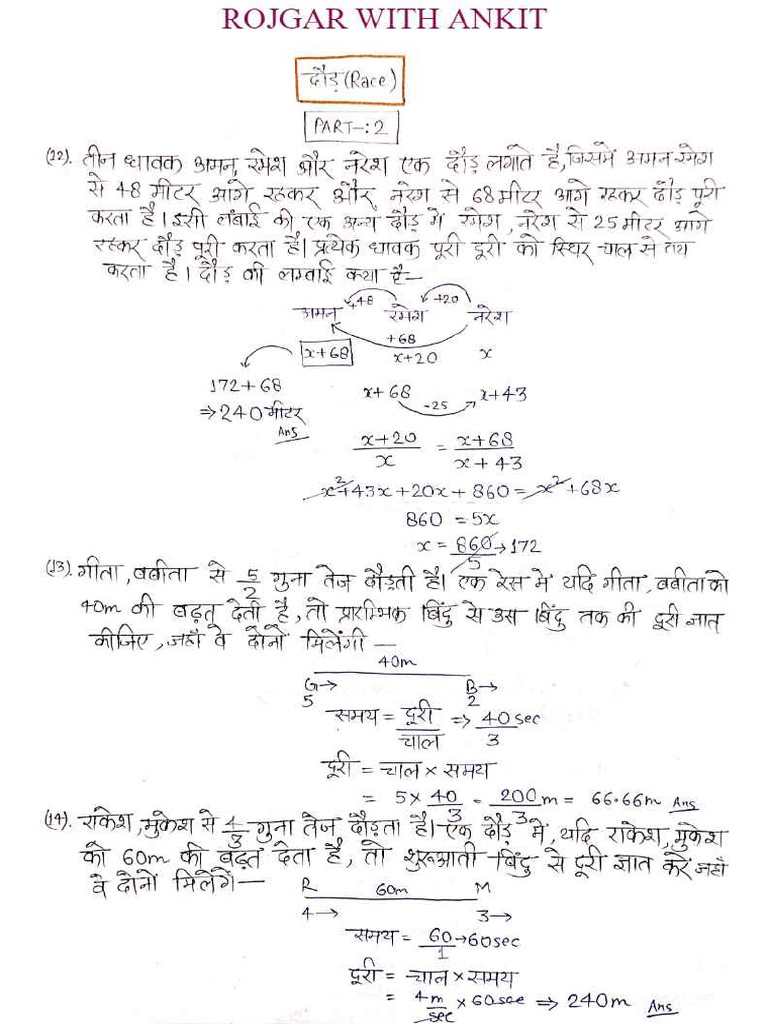 ROJGAR WITH ANKIT
दौड़ (Race)
PART-:2
(12). तीन धावक अमन, रमेश और नरेश एक दौड़ लगाते है, जिसमें अमन रमेश
से 48 मीटर आगे रहकर और, नरेश से 68 मीटर आगे रहकर दौड़ पूरी
करता है। इसी लंबाई की एक अन्य दौड़ में रमेश, नरेश से 25 मीटर आगे
रहकर दौड़ पूरी करता है। प्रत्येक धावक पूरी दूरी को स्थिर चाल से तय
करता है। दौड़ की लम्बाई क्या है-
+48 +20
अमन रमेश नरेश
+68
x+68 x+20 x
172+68 x+68 -25 x+43
⇒ 240 मीटर
Ans
x+20/x = x+68/x+43
x²+43x+20x+860 = x²+68x
860 = 5x
x = 860/5 → 172
(13). गीता, बबीता से 5/2 गुना तेज दौड़ती है। एक रेस में यदि गीता, बबीता को
40m की बढ़त देती है, तो प्रारम्भिक बिंदु से उस बिंदु तक की दूरी ज्ञात
कीजिए, जहाँ वे दोनों मिलेंगी -
40m
G→ B→
5 2
समय = दूरी/चाल ⇒ 40/3 sec
दूरी = चाल × समय
= 5 × 40/3 = 200/3 m = 66.66m Ans
(14). राकेश, मुकेश से 4/3 गुना तेज दौड़ता है। एक दौड़ में, यदि राकेश, मुकेश
को 60m की बढ़त देता है, तो शुरूआती बिंदु से दूरी ज्ञात करें जहाँ
वे दोनों मिलेगें-
R 60m M
4→ 3→
समय = 60/1 → 60sec
दूरी = चाल × समय
= 4 m/sec × 60 sec ⇒ 240m Ans